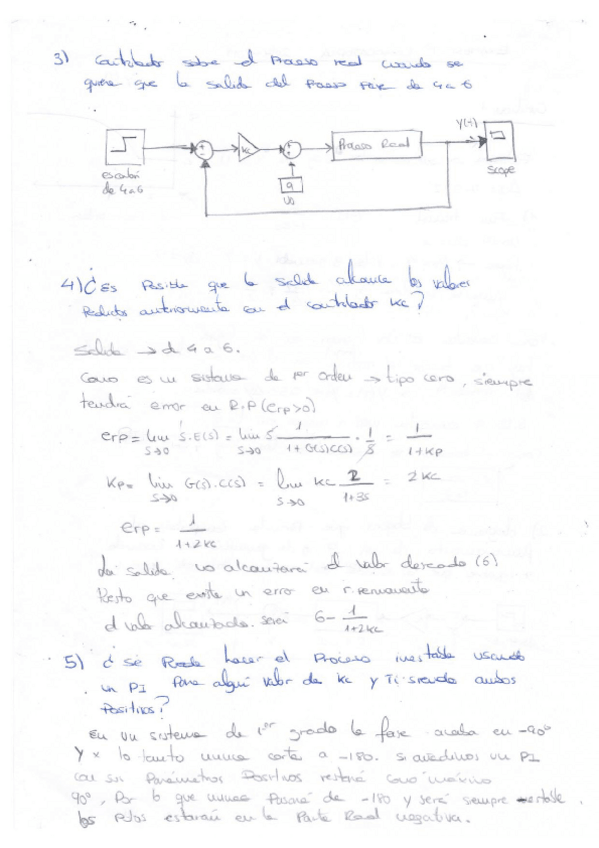 3) Controlador sobre el Proceso real cuando se
quiere que la salida del Proceso pase de 4 a 6
Y(t)
Kc
Proceso Real
escalón
de 4 a 6
a
U0
Scope
4) ¿Es Posible que la salida alcance los valores
Pedidos anteriormente con el controlador Kc?
Salida → de 4 a 6.
Como es un sistema de 1er orden → tipo cero, siempre
tendrá error en R.P (erp>0)
erp = lim S.E(s) = lim S 1/(1+G(s)C(s)) · 1/S = 1/(1+Kp)
S→0 S→0
Kp = lim G(s).C(s) = lim Kc 2/(1+3s) = 2Kc
S→0 S→0
erp = 1/(1+2Kc)
La salida no alcanzará el valor deseado (6)
Puesto que existe un error en r. permanente
el valor alcanzado será 6 - 1/(1+2Kc)
5) ¿Se Puede hacer el Proceso inestable usando
un PI Para algún valor de Kc y Ti siendo ambos
Positivos?
En un sistema de 1er grado la fase acaba en -90º
Y x lo tanto nunca corta a -180. Si añadimos un PI
con sus Parámetros Positivos restará como máximo
90º, Por lo que nunca Pasará de -180 y será siempre estable.
los Polos estarán en la Parte Real negativa.